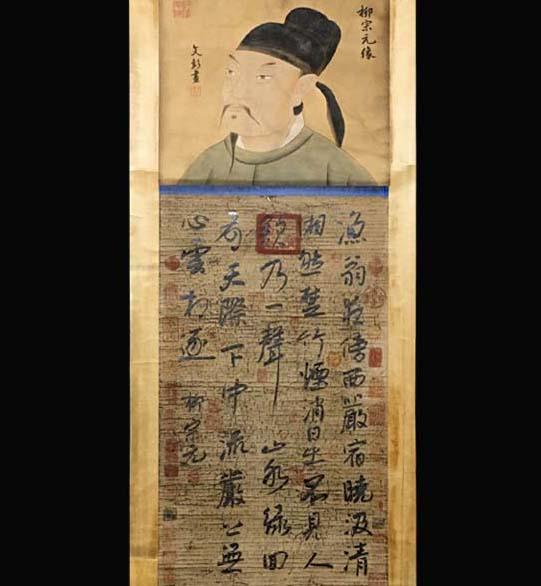 柳宗元像
文彭畫
漁翁夜傍西巖宿曉汲清
湘然楚竹煙消日出不見人
欸乃一聲山水綠回
看天際下中流巖上無
心雲相逐
柳宗元